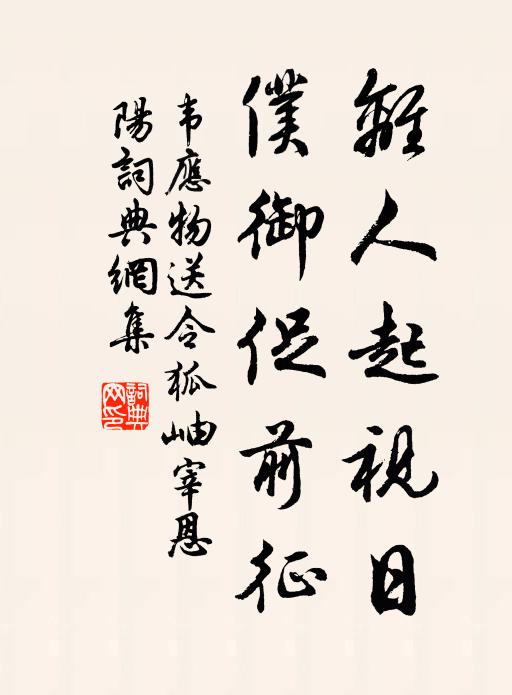 離人起視日
僕御促前征
韦應物送令狐岫宰恩
陽詞典網集
詞典
网印